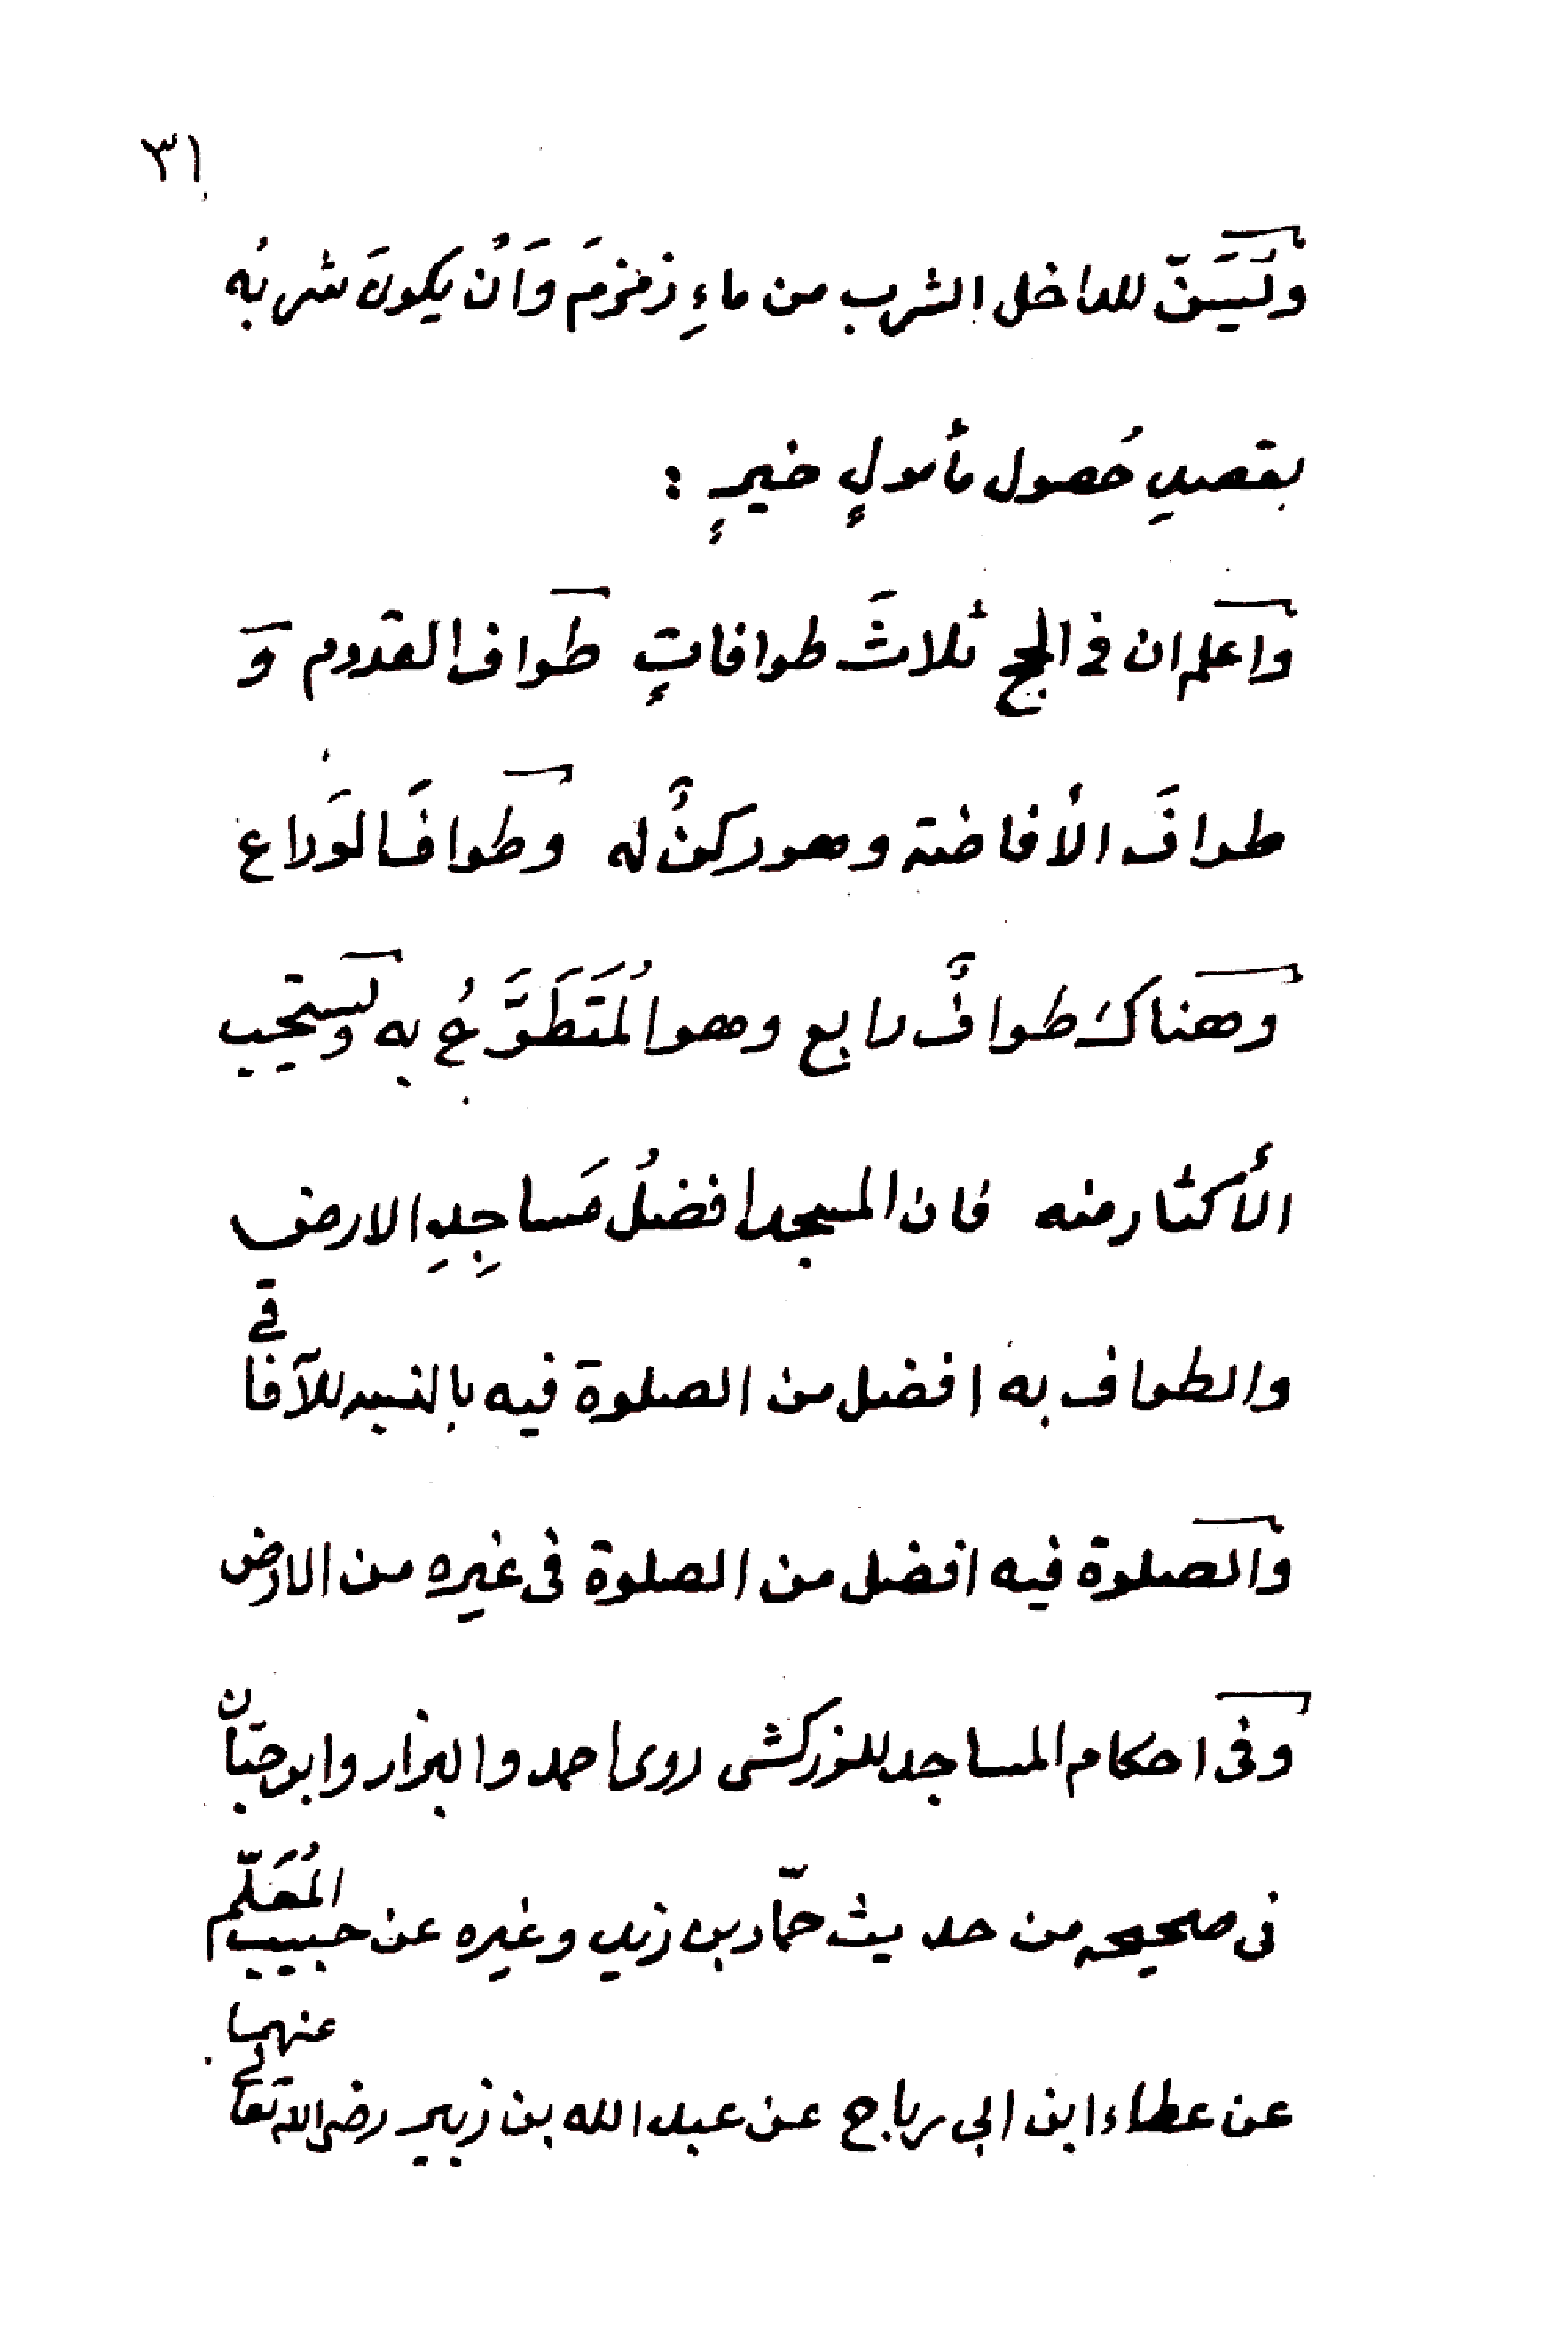 ٣١
وَيُسَنّ للداخل الشرب من ماءِ زمزمَ وَاَنْ يكونَ شربُه
بقصدِ حُصول مأمولٍ خيرٍ :
واعلم ان فى الحج ثلاثَ طوافاتٍ طواف القدوم وَ
طوافَ الأفاضة وهو ركنٌ له وطوافَ الوَداع
وهناك طوافٌ رابع وهو المُتَطَوَّعُ به ويستحب
الأكثار منه فان المسجد افضلُ مَساجِدِ الارض
والطواف به افضل من الصلوة فيه بالنسبه للآفاقي
والصلوة فيه افضل من الصلوة فى غيره من الارض
وفى احكام المساجد للزركشى روى احمد والبزار وابو حبّان
فى صحيحه من حديث حمّاد بن زيد وغيره عن حبيب المُعَلّم
عن عطاء ابن ابى رباح عن عبد الله بن زبير رضى الله تعالى عنهما